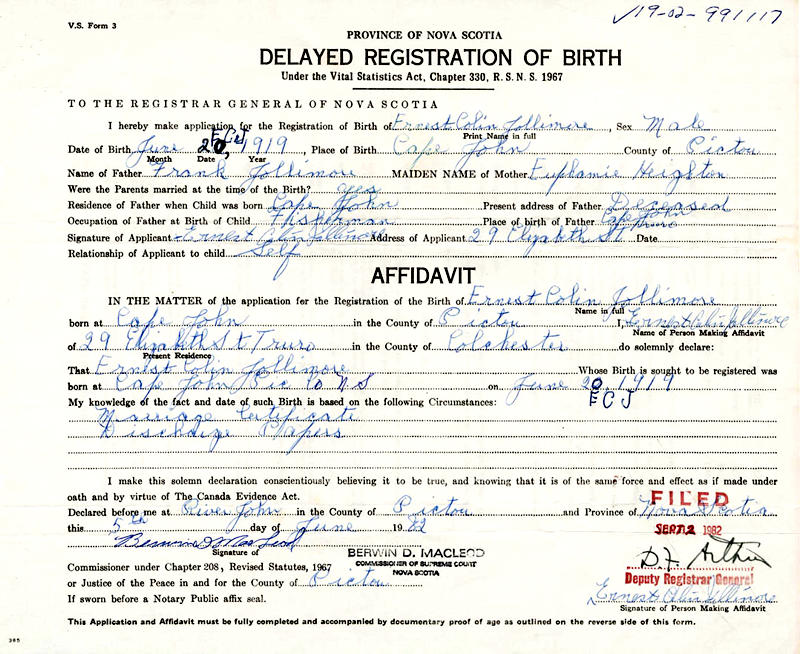 V.S. Form 3
✓19-02-991117
PROVINCE OF NOVA SCOTIA
DELAYED REGISTRATION OF BIRTH
Under the Vital Statistics Act, Chapter 330, R. S. N. S. 1967
TO THE REGISTRAR GENERAL OF NOVA SCOTIA
I hereby make application for the Registration of Birth of Ernest Colin Jollimore, Sex Male
Print Name in full
E C J
Date of Birth June 20, 1919, Place of Birth Cape John County of Pictou
Month Date Year
Name of Father Frank Jollimore MAIDEN NAME of Mother Euphanie Heighton
Were the Parents married at the time of the Birth? yes
Residence of Father when Child was born Cape John Present address of Father Deceased
Occupation of Father at Birth of Child Fisherman Place of birth of Father Cape John
Signature of Applicant Ernest Colin Jollimore Address of Applicant 29 Elizabth St Truro Date
Relationship of Applicant to child Self
AFFIDAVIT
IN THE MATTER of the application for the Registration of the Birth of Ernest Colin Jollimore
Name in full
born at Cape John in the County of Pictou I, Ernest Colin Jollimore
Name of Person Making Affidavit
of 29 Elizabth St Truro in the County of Colchester do solemnly declare:
Present Residence
That Ernest Colin Jollimore Whose Birth is sought to be registered was
born at Cape John Pic Co N S on June 20, 1919
E C J
My knowledge of the fact and date of such Birth is based on the following Circumstances:
Marriage Certificate
Discharge Papers
I make this solemn declaration conscientiously believing it to be true, and knowing that it is of the same force and effect as if made under
oath and by virtue of The Canada Evidence Act.
FILED
Declared before me at River John in the County of Pictou and Province of Nova Scotia
this 5th day of June 1982
SEPT 2 1982
Berwin D MacLeod
Signature of
BERWIN D. MACLEOD
COMMISSIONER OF SUPREME COURT
NOVA SCOTIA
Commissioner under Chapter 208, Revised Statutes, 1967
Deputy Registrar General
or Justice of the Peace in and for the County of Pictou
Ernest Colin Jollimore
If sworn before a Notary Public affix seal.
Signature of Person Making Affidavit
This Application and Affidavit must be fully completed and accompanied by documentary proof of age as outlined on the reverse side of this form.
385